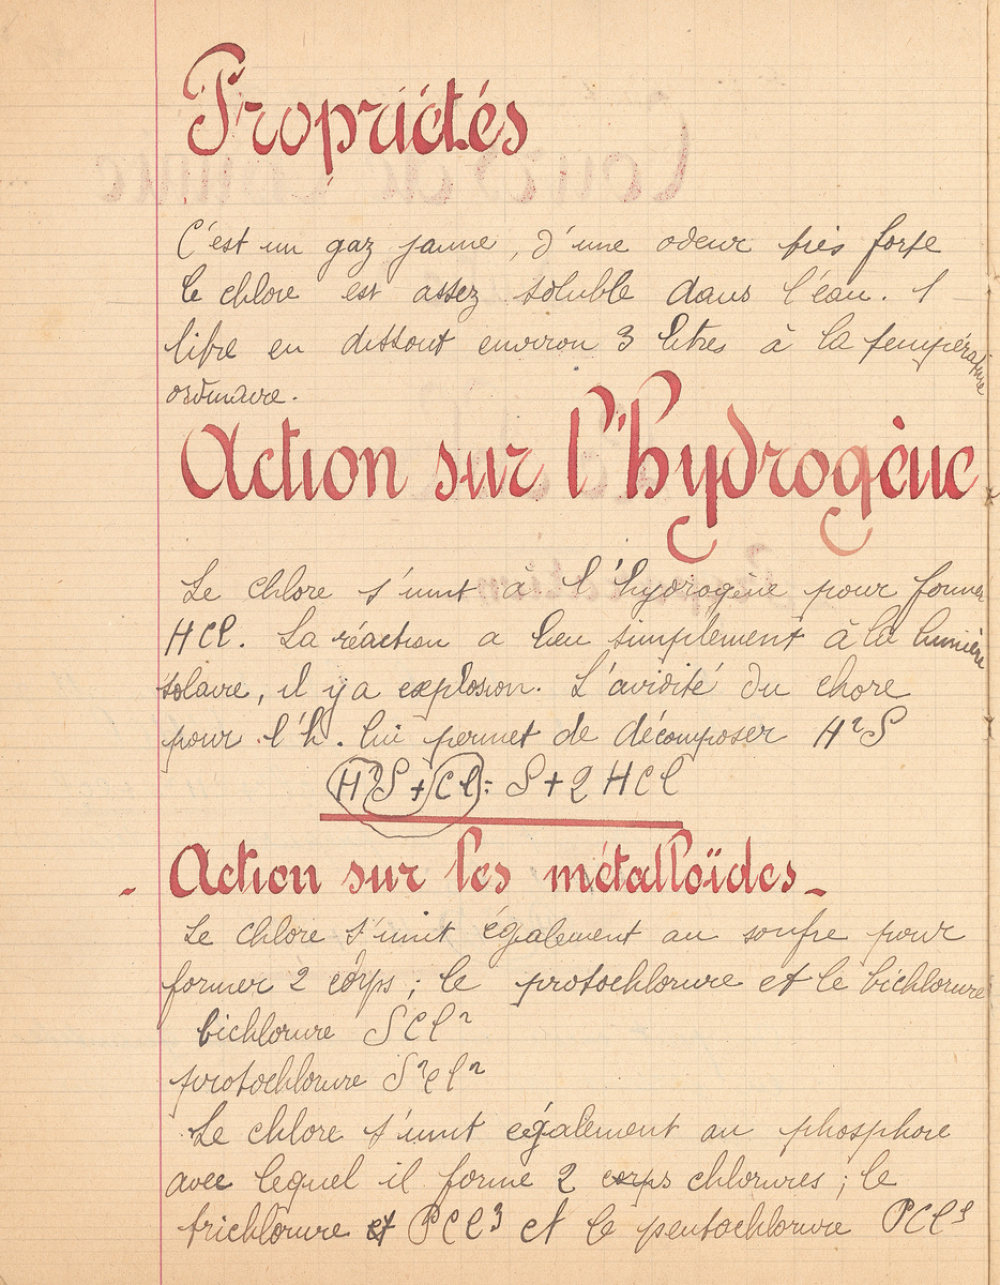 Propriétés
C'est un gaz jaune, d'une odeur très forte
le chlore est assez soluble dans l'eau. 1
litre en dissout environ 3 litres à la température
ordinaire.
Action sur l'hydrogène
Le chlore s'unit à l'hydrogène pour former
HCl. La réaction a lieu simplement à la lumière
solaire, il y a explosion. L'avidité du chore
pour l'h. lui permet de décomposer H²S
H²S + Cl = S + 2 HCl
- Action sur les métalloïdes -
Le chlore s'unit également au soufre pour
former 2 corps ; le protochlorure et le bichlorure
bichlorure SCl²
protochlorure S²Cl²
Le chlore s'unit également au phosphore
avec lequel il forme 2 corps chlorures ; le
trichlorure et PCl³ et le pentachlorure PCl⁵